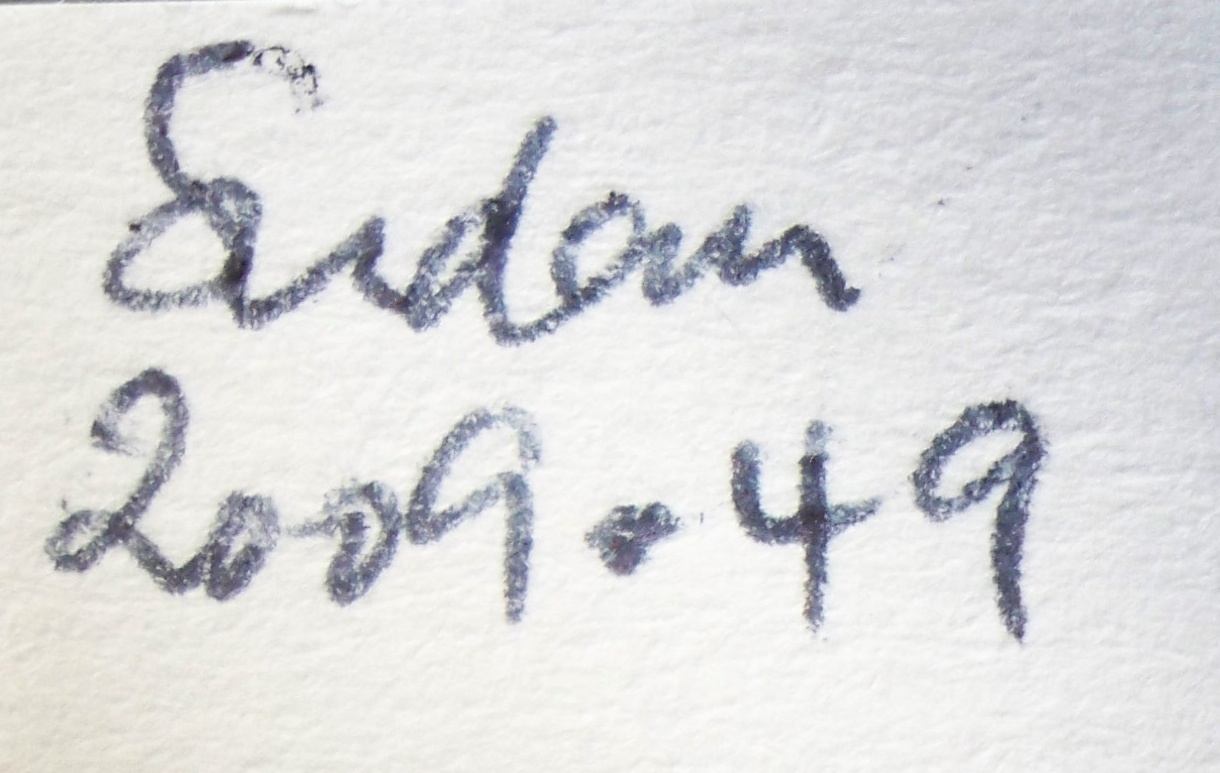 Erdan
2009.49